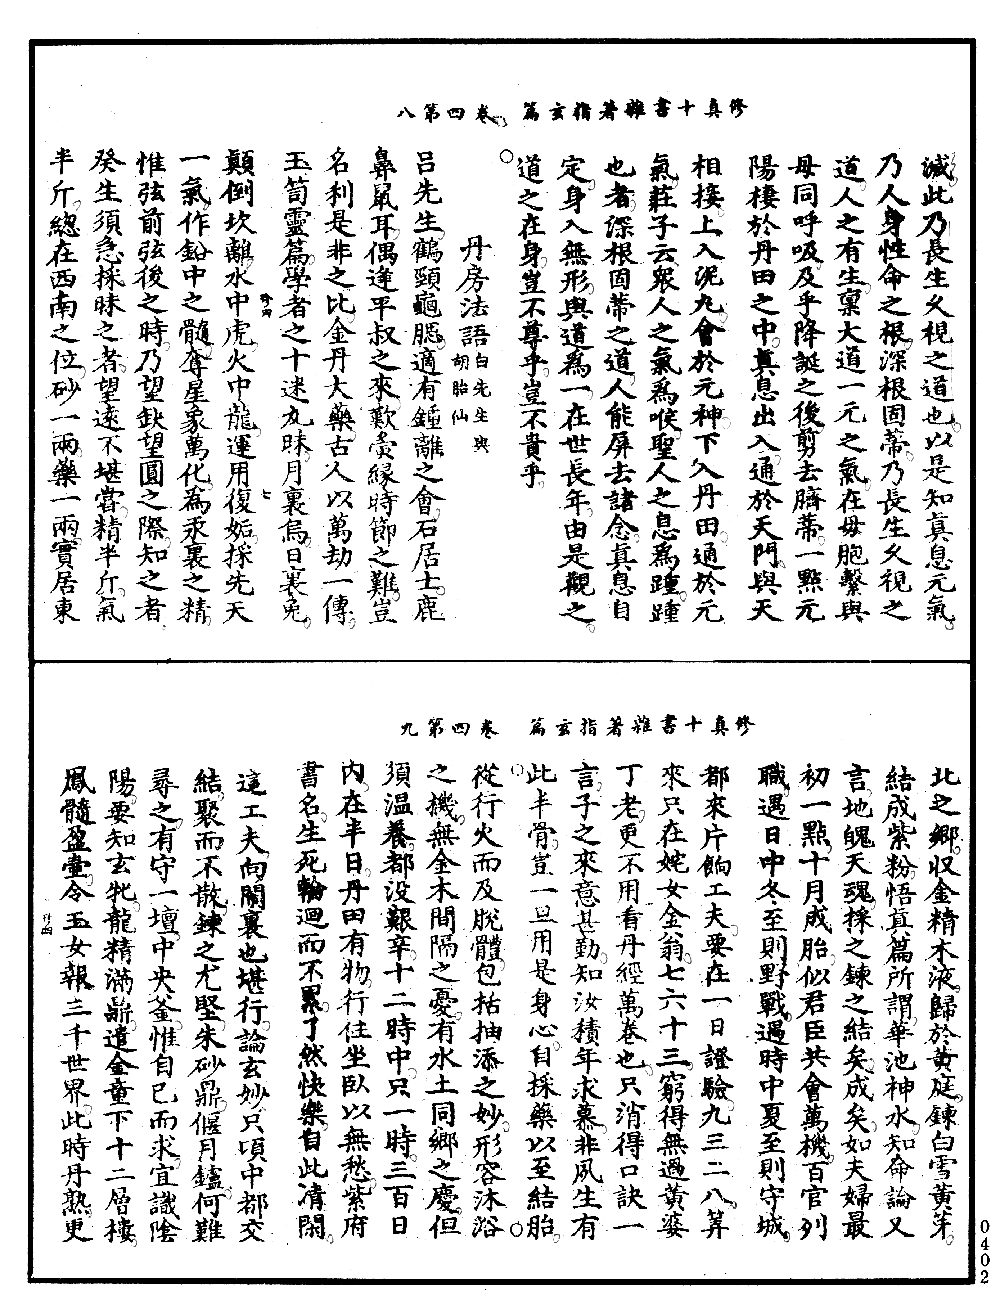 修真十書雜著指玄篇　卷四第八
滅此乃長生久視之道也以是知真息元氣
乃人身性命之根深根固蔕乃長生久視之
道人之有生稟大道一元之氣在母胞繫與
母同呼吸及乎降誕之後剪去臍蔕一點元
陽棲於丹田之中真息出入通於天門與天
相接上入泥丸會於元神下入丹田通於元
氣莊子云衆人之氣為喉聖人之息為踵踵
也者深根固蔕之道人能屏去諸念真息自
定身入無形與道為一在世長年由是觀之
道之在身豈不尊乎豈不貴乎
丹房法語白先生與胡胎仙
吕先生鶴頸龜腮適有鍾離之會石居士鹿
鼻鼠耳偶逢平叔之來歎夤緣時節之難豈
名利是非之比金丹大藥古人以萬劫一傳
玉笥靈篇學者之十迷九昧月裏烏日裏兔
顛倒坎離水中虎火中龍運用復姤採先天
一氣作鉛中之髓奪星象萬化為汞裏之精
惟弦前弦後之時乃望缺望圓之際知之者
癸生須急採昧之者望遠不堪嘗精半斤氣
半斤總在西南之位砂一兩藥一兩實居東
修真十書雜著指玄篇　卷四第九
北之鄉収金精木液歸於黄庭鍊白雪黄芽
結成紫粉悟真篇所謂華池神水知命論又
言地魄天魂採之鍊之結矣成矣如夫婦最
初一點十月成胎似君臣共會萬機百官列
職遇日中冬至則野戰遇時中夏至則守城
都來片餉工夫要在一日證驗九三二八筭
來只在姹女金翁七六十三窮得無過黄婆
丁老更不用看丹經萬卷也只消得口訣一
言子之來意甚勤知汝積年求慕非夙生有
此半骨豈一旦用是身心自採藥以至結胎
從行火而及脱體包枯抽添之妙形容沐浴
之機無金木間隔之憂有水土同鄉之慶但
須温養都没艱辛十二時中只一時三百日
内在半日丹田有物行住坐臥以無愁紫府
書名生死輪迴而不累了然快樂自此清閑
這工夫向閙裏也堪行論玄妙只頃中都交
結聚而不散鍊之尤堅朱砂鼎偃月鑪何難
尋之有守一壇中央釜惟自己而求宜識陰
陽要知玄牝龍精滿鼎遣金童下十二層樓
鳳髓盈壷令玉女報三千世界此時丹熟更
0402